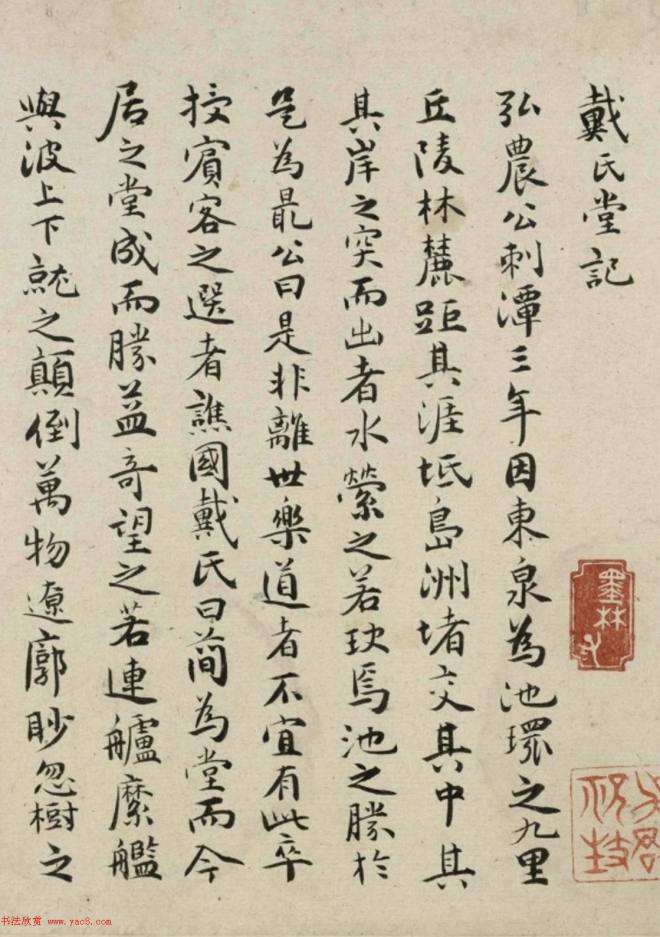 戴氏堂記
弘農公刺潭三年因東泉為池環之九里
丘陵林麓距其涯坻島洲堵交其中其
其岸之突而出者水縈之若玦焉池之勝於
是為最公曰是非離世樂道者不宜有此卒
授賓客之選者譙國戴氏曰簡為堂而今
居之堂成而勝益奇望之若連艫縻艦
與波上下就之顛倒萬物遼廓眇忽樹之
墨林
书法欣赏 www.yac8.com